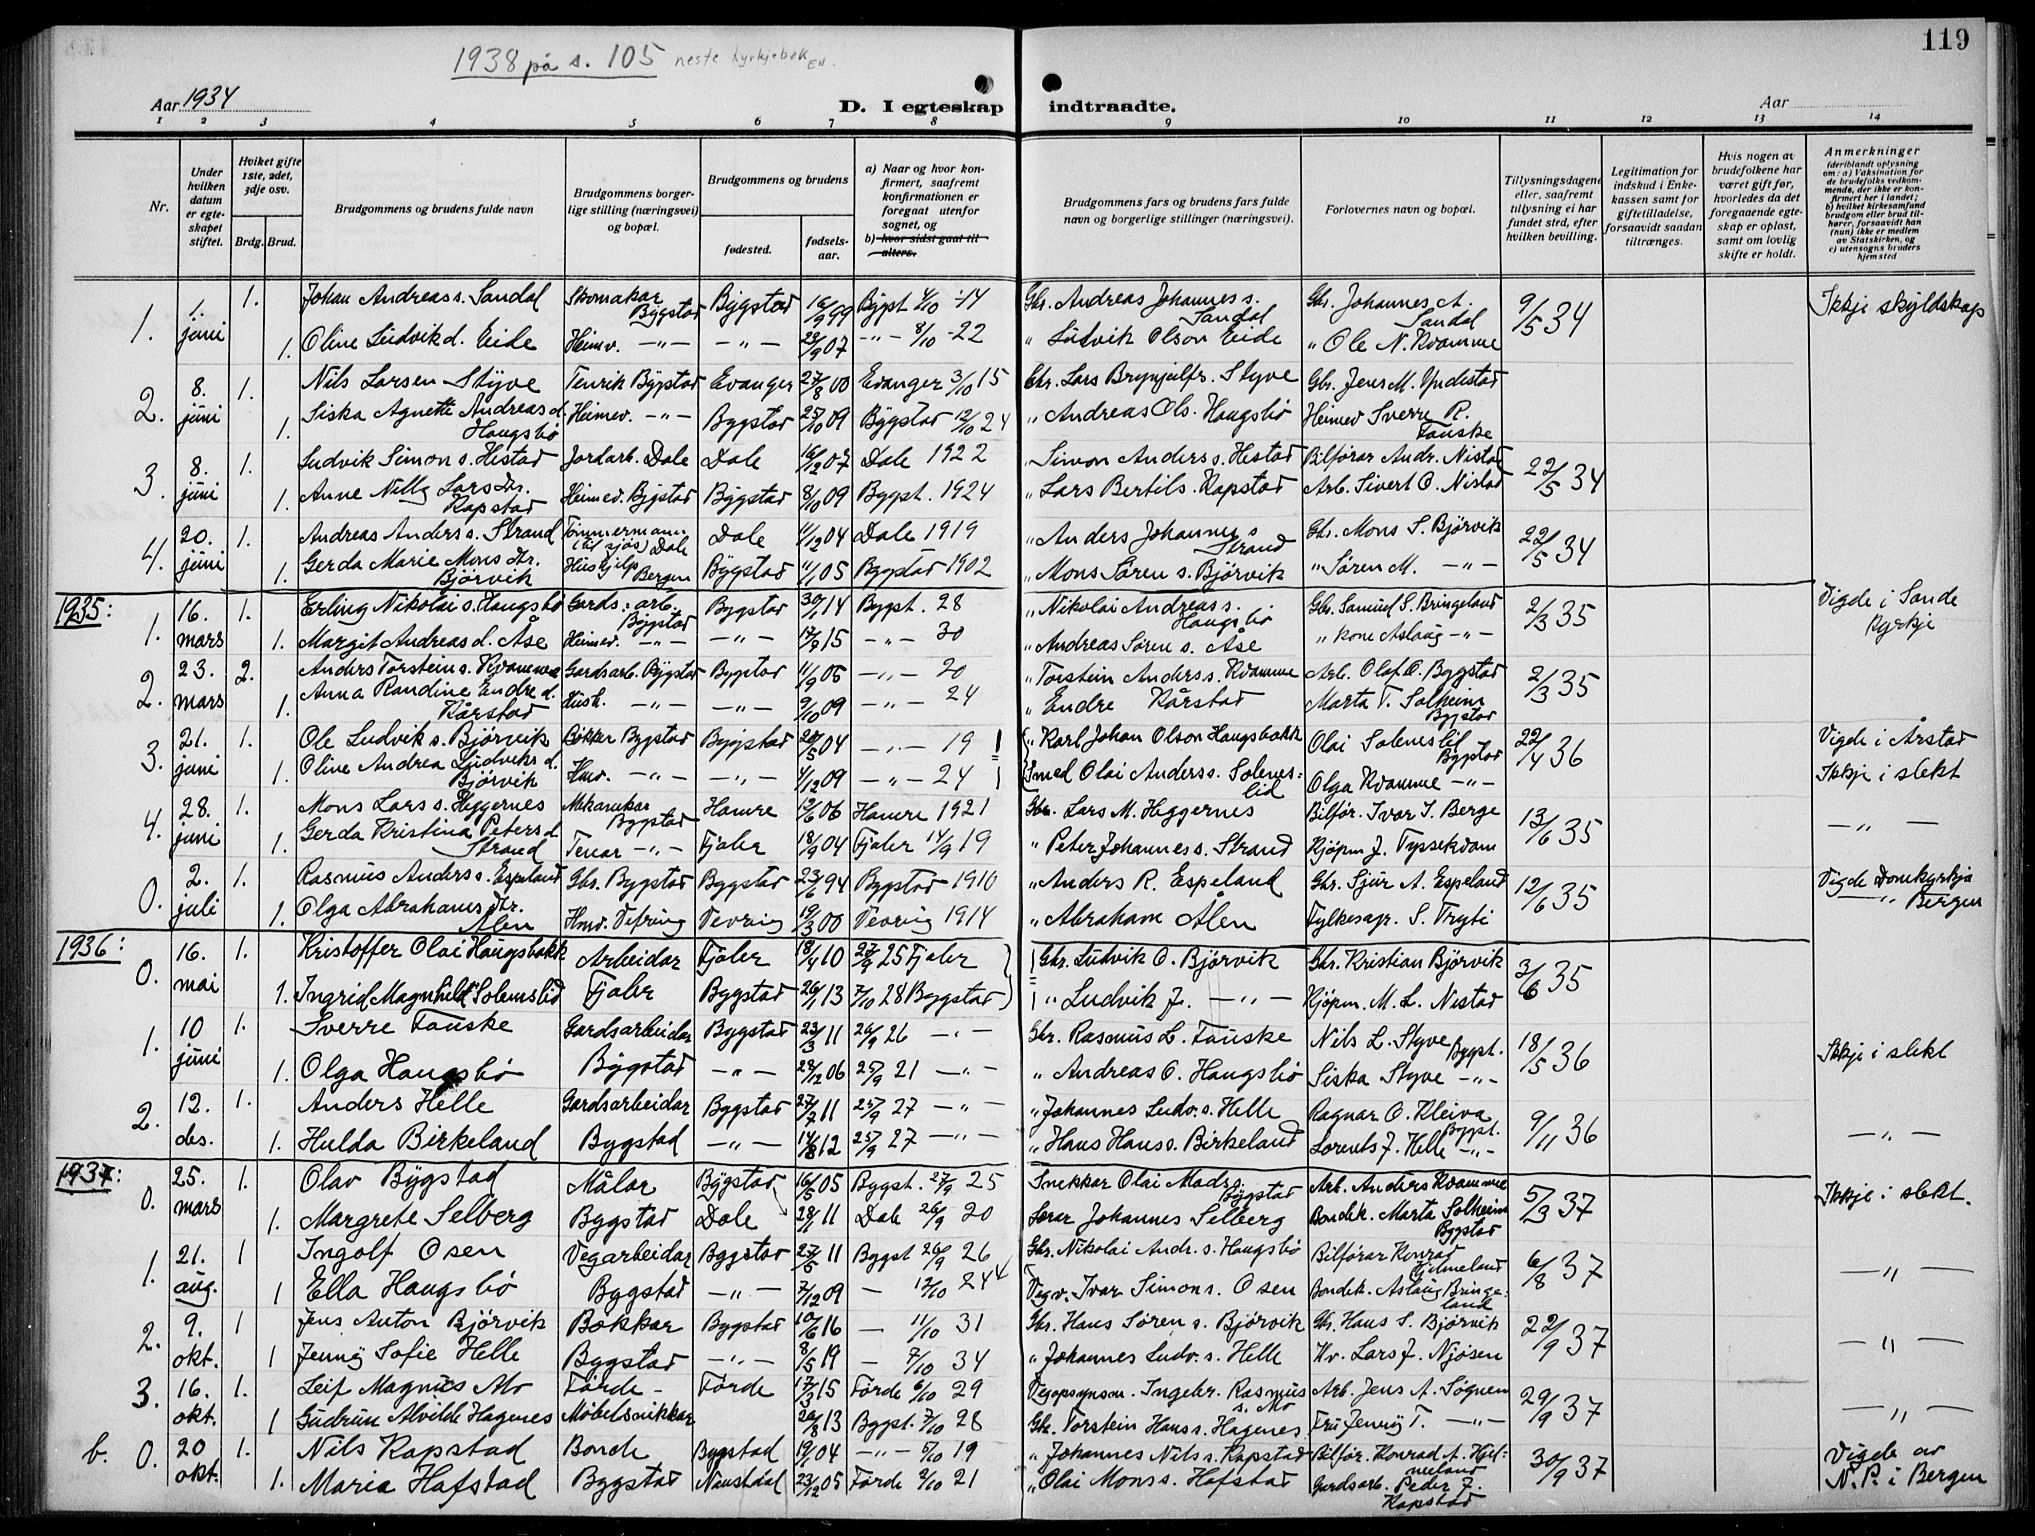 119
1938 på s. 105 neste kyrkjebok EN.
Aar 1934
D. I egteskap indtraadte.
Aar
1 2 3 4 5 6 7 8 9 10 11 12 13 14
Nr.
Under hvilken datum er egteskapet stiftet.
Hvilket gifte 1ste, 2det, 3dje osv.
Brdg. Brud.
Brudgommens og brudens fulde navn
Brudgommens borgerlige stilling (næringsvei) og bopæl.
Brudgommens og brudens
fødested.
fødselsaar.
a) Naar og hvor konfirmert, saafremt konfirmationen er foregaat utenfor sognet, og
b) hvor sidst gaat til alters.
Brudgommens fars og brudens fars fulde navn og borgerlige stillinger (næringsvei).
Forlovernes navn og bopæl.
Tillysningsdagene eller, saafremt tillysning ei har fundet sted, efter hvilken bevilling.
Legitimation for indskud i Enkekassen samt for giftetilladelse, forsaavidt saadan tiltrænges.
Hvis nogen av brudefolkene har været gift før, hvorledes da det foregaaende egteskap er opløst, samt om lovlig skifte er holdt.
Anmerkninger
(deriblandt oplysning om: a) Vaksination for de brudefolks vedkommende, der ikke er konfirmert her i landet; b) hvilket kirkesamfund brudgom eller brud tilhører, forsaavidt han (hun) ikke er medlem av Statskirken, og c) utensogns bruders hjemsted
1. 1. juni 1. Johan Andreas s. Sandal Skomakar Bygstad Bygstad 16/9 99 Bygst 4/10 -14 Gbr. Andreas Johannes s. Sandal Gbr. Johannes A. Sandal 9/5 34 Ikkje skyldskap
1. Oline Ludvik d. Eide Heimv. -"- -"- 28/9 07 -"- 8/10 -22 " Ludvik Olson Eide " Ole N. Kvamme
2. 8. juni 1. Nils Larsen Styve Bygstad Evanger 27/8 00 Evanger 3/10 15 Gbr. Lars Brynjulfs. Styve Gbr. Jens M. Yndestad
1. Siska Agnette Andreas d. Haugsbø Heimev. -"- Bygstad 25/10 09 Bygstad 12/10 24 " Andreas Ols. Haugsbø Heimev Sverre R. Fauske
3. 8. juni 1. Ludvik Simon s. Hestad Jordarb. Dale Dale 16/12 07 Dale 1922 " Simon Anders s. Hestad Bilførar Andr. Nistad 22/5 34
1. Anne Nilly Lars dr. Rapstad Heimev. Bygstad Bygstad 8/10 09 Bygst. 1924 " Lars Bertils. Rapstad Arb. Sivert O. Nistad
4. 20. juni 1. Andreas Anders s. Strand Tømmermann (til sjøs) Dale Dale 11/12 04 Dale 1919 " Anders Johannes s Strand Gbr. Mons S. Bjørvik 22/5 34
1. Gerda Marie Mons dr. Bjørvik Hushjelp Bergen Bygstad 11/1 05 Bygstad 1902 " Mons Søren s. Bjørvik " Søren M. -"-
1935: 1. 16. mars 1. Erling Nikolai s. Haugsbø Gards:arb. Bygstad Bygstad 30/1 14 Bygst. 28 " Nikolai Andreas s. Haugsbø Gbr. Samuel S. Bringeland 2/3 35 Vigde i Sande Kyrkje
1. Margit Andreas d. Åse Heimev. -"- -"- 17/7 15 -"- 30 " Andreas Søren s. Åse " kone Aslaug -"-
2. 23. mars 2. Anders Torstein s. Kvamme Gardsarb. Bygstad Bygstad 11/9 05 -"- 20 " Torstein Anders s. Kvamme Arb. Olaf O. Bygstad 2/3 35
1. Anna Randine Endre d. Kårstad Hush. -"- -"- 9/10 09 -"- 24 " Endre Kårstad Marta T. Solheim Bygstad
3. 21. juni 1. Ole Ludvik s. Bjørvik Bøkker Bygstad Bygstad 20/5 04 -"- 19 ! " Karl Johan Olson Haugsbakk Olai Soleneslil Bygstad 22/4 36 Vigde i Årstad
1. Oline Andrea Ludviks d. Bjørvik Hmv. -"- -"- 4/12 09 -"- 24 ! Smed Olai Anders s. Solenes:lid Olga Kvamme -"- Ikkje i slekt
4. 28. juni 1. Mons Lars s. Heggernes Mekanikar Bygstad Hamre 12/6 06 Hamre 1921 Gbr. Lars M. Heggernes Bilfør. Ivar I. Berge 13/6 35 -"-
1. Gerda Kristina Peters d. Strand -"- Fjaler 18/9 04 Fjaler 14/9 19 " Peter Johannes s. Strand Kjøpm J. Tyssekvam
0. 2. juli 1. Rasmus Anders s. Espeland Gbr. Bygstad Bygstad 23/6 94 Bygstad 1910 " Anders R. Espeland Gbr. Sjur A. Espeland 12/6 35 Vigde Domkyrkja
1. Olga Abrahams dr. Ålen Hmv. Vefring Vevring 19/3 00 Vevring 1914 " Abraham Ålen Fylkesagr. S. Tryti " Bergen
1936: 0. 16. mai 1. Kristoffer Olai Haugsbakk Arbeidar Fjaler 18/4 10 27/9 25 Fjaler ! Gbr. Ludvik O. Bjørvik Gbr. Kristian Bjørvik 3/6 35
1. Ingrid Magnhild Solemslid Fjaler Bygstad 26/1 13 7/10 28 Bygstad ! " Ludvik J. -"- Kjøpm. M. L. Nistad
1. 10 juni 1. Sverre Fauske Gardsarbeidar Bygstad 23/3 11 26/9 26 -"- Gbr. Rasmus L. Fauske Nils L. Styve Bygst. 18/5 36 Ikkje i slekt
1. Olga Haugsbø Bygstad -"- 28/12 06 25/9 21 -"- " Andreas O. Haugsbø Siska Styve -"-
2. 12. des. 1. Anders Helle Gardsarbeidar Bygstad 27/7 11 25/9 27 -"- " Johannes Ludv. s. Helle Ragnar O. Kleiva Bygst. 9/11 36 -"-
1. Hulda Birkeland Bygstad -"- 14/8 12 25/9 27 -"- " Hans Hans s. Birkeland Lorents J. Helle -"-
1937: 0. 25. mars 1. Olav Bygstad Målar Bygstad 16/5 05 Bygst. 27/9 25 Snekkar Olai Mads s. Bygstad Arb. Anders Kvamme 5/3 37 Ikkje i slekt.
1. Margrete Selberg Bygstad Dale 28/1 11 Dale 26/9 20 Lærar Johannes Selberg Bondek. Marta Solheim Bygstad
1. 21. aug. 1 Ingolf Osen Vegarbeidar Bygstad 27/5 11 Bygst 26/9 26 Gbr. Nikolai Andr. s. Haugsbø Bilførar Konrad Hjelmeland 6/8 37 -"-
1 Ella Haugsbø Bygstad -"- 7/12 09 - 12/10 24 Vegv. Ivar Simon s. Osen Bondek. Aslaug Bringe:land
2. 9. okt. 1 Jens Anton Bjørvik Bøkkar Bygstad 10/6 16 - 11/10 31 Gbr. Hans Søren s. Bjørvik Gbr. Hans S. Bjørvik 22/9 37 -"-
1 Jenny Sofie Helle Bygstad -"- 8/5 19 - 7/10 34 " Johannes Ludv. s. Helle Kv. Lars J. Njøsen
3. 16. okt. 1. Leif Magnus Mo Førde - Førde 17/3 15 Førde 6/10 29 Vegopsynsm. Ingebr. Rasmus s. Mo Arb. Jens A. Søgnen 29/9 37 -"-
1 Gudrun Alvilde Hagenes Møbelsnikkar 20/8 13 Bygst. 7/10 28 Gbr. Torstein Hans s. Hagenes Fru Jenny T. -"-
b. 0. 20 okt. 1. Nils Rapstad Bonde Bygstad 19/1 04 -"- 5/10 19 " Johannes Nils s. Rapstad Bilfør. Konrad A. Hjel:meland 30/9 37 Vigde av
1. Maria Hafstad Bygstad Naustdal 23/12 05 Førde 2/10 21 " Olai Mons s. Hafstad Gardsarb. Peder J. Rapstad N. P. i Bergen